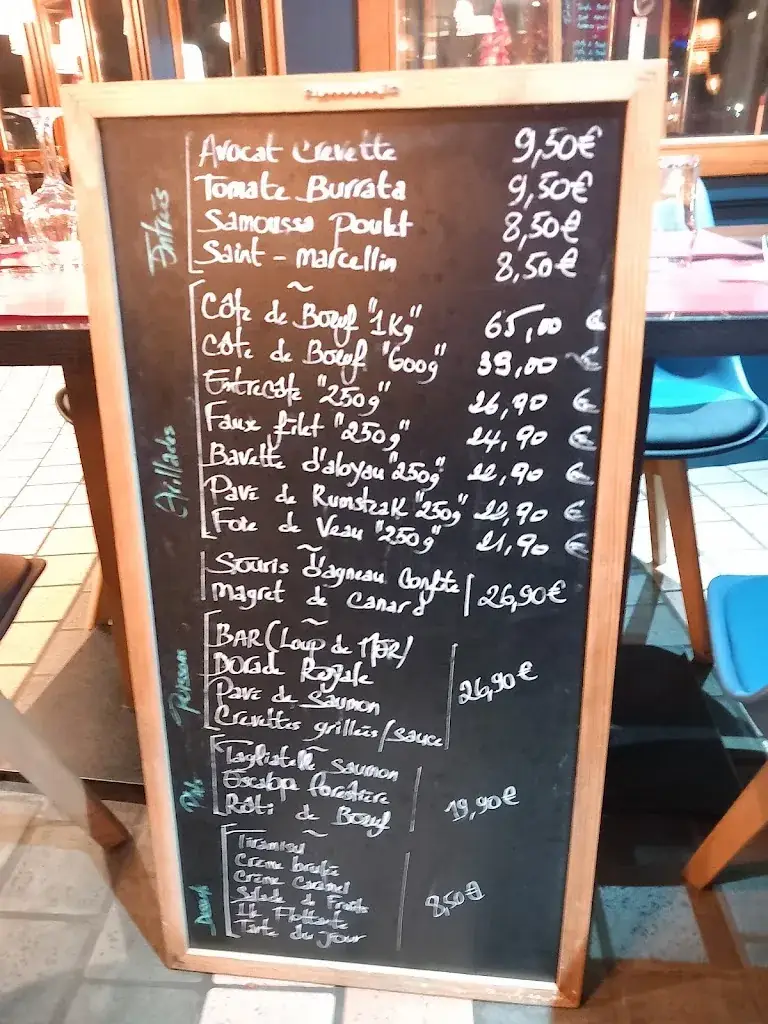 Entrées
Avocat crevette 9,50€
Tomate Burrata 9,50€
Samoussa Poulet 8,50€
Saint-marcellin 8,50€
~
Grillades
Côte de Boeuf "1Kg" 65,00 €
Côte de Boeuf "600g" 39,00 €
Entrecôte "250g" 26,90 €
Faux filet "250g" 24,90 €
Bavette d'aloyau "250g" 22,90 €
Pavé de Rumsteak "250g" 22,90 €
Foie de Veau "250g" 21,90 €
~
Souris d'agneau Confite
Magret de Canard 26,90€
~
Poissons
BAR (Loup de MER)
Dorade Royale
Pavé de Saumon 26,90€
Crevettes grillées/sauce
~
Tagliatelle Saumon
Escalope forestière 19,90€
Rôti de Boeuf
~
Dessert
Tiramisu
Crème brulée
Crème Caramel
Salade de Fruits 8,50€
Ile Flottante
Tarte du jour